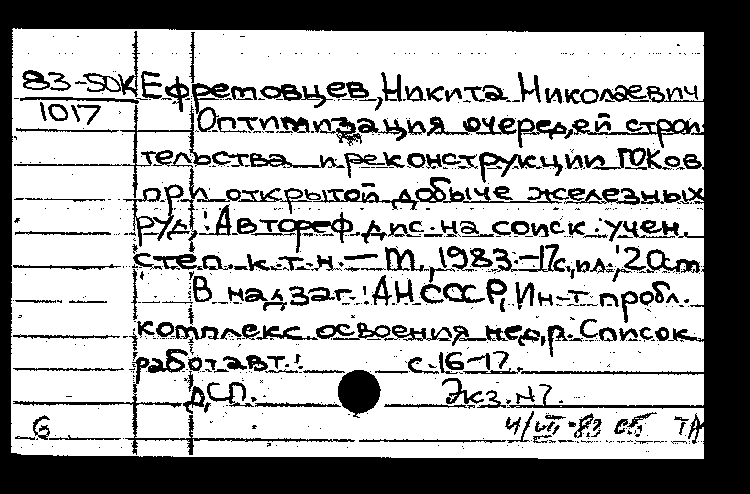 83-50К Ефремовцев, Никита Николаевич
1017 Оптимизация очередей строи-
тельства и реконструкции ГОКов
при открытой добыче железных
руд.: Автореф. дис. на соиск. учен.
степ. к.т.н. — М., 1983. - 17с., ил.; 20см
В надзаг.: АН СССР, Ин-т пробл.
комплекс. освоения недр. Список
работ авт.: с. 16-17.
ДСП. Экз. №7.
G 4/VII-83 ОБ ТА